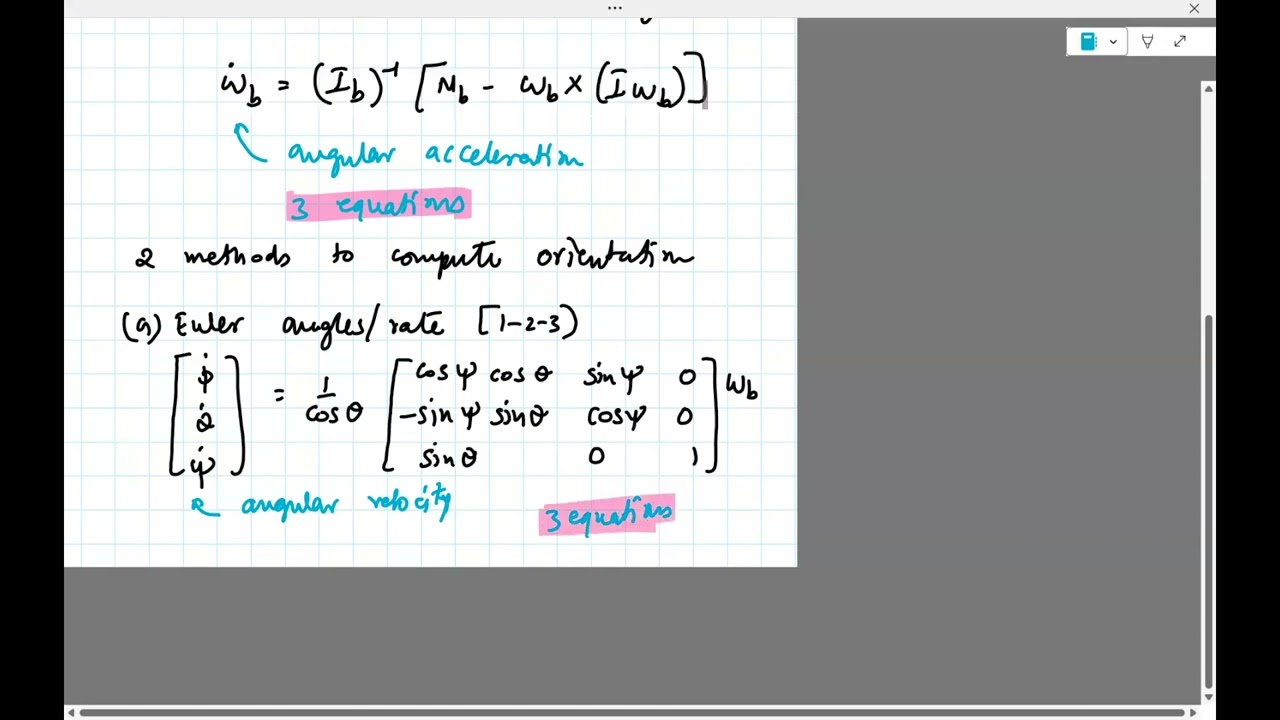 ω̇_b = (I_b)^-1 [N_b - ω_b × (I ω_b)]
angular acceleration
3 equations
2 methods to compute orientation
(a) Euler angles/rate [1-2-3)
[φ̇ θ̇ ψ̇] = 1/cos θ [cos ψ cos θ sin ψ 0
-sin ψ sin θ cos ψ 0
sin θ 0 1] ω_b
angular velocity
3 equations